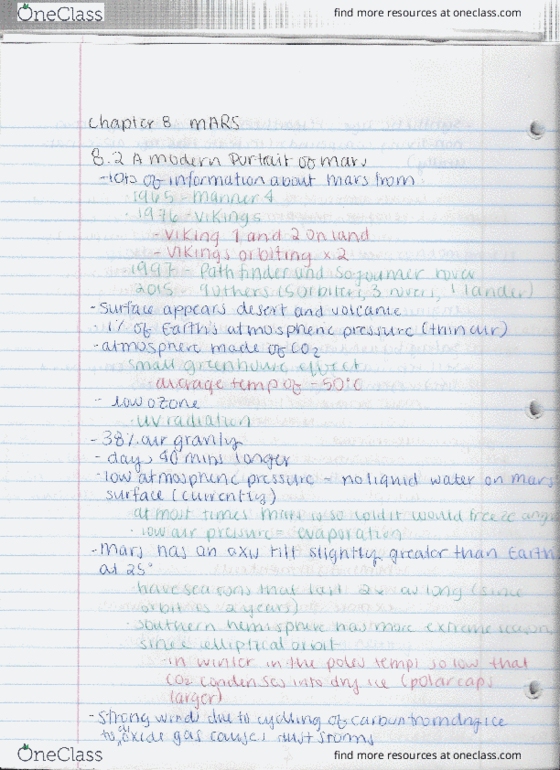 OneClass
find more resources at oneclass.com
Chapter 8 MARS
8.2 A modern Portrait of mars
- lots of information about Mars from
· 1965 - Mariner 4
· 1976 - Vikings
- Viking 1 and 2 on land
- Vikings orbiting x 2
· 1997 - Pathfinder and Sojourner rover
· 2015 - 9 others (5 orbiters, 3 rovers, 1 lander)
- Surface appears desert and volcanic
- 1% of Earth's atmospheric pressure (thin air)
- atmosphere made of CO2
· small greenhouse effect
- average temp of -50°C
- low ozone
· uv radiation
- 38% our gravity
- day, 40 mins longer
- low atmospheric pressure = no liquid water on Mars
surface (currently)
· at most times mars is so cold it would freeze
· low air pressure = evaporation
- Mars has an axis tilt slightly greater than Earth
at 25°
· have seasons that last 2x as long (since
orbit is 2 years)
· southern hemisphere has more extreme
since elliptical orbit
- in winter in the poles temps so low that
CO2 condenses into dry ice (polar caps
larger)
- strong winds due to cycling of carbon from dry ice
to oxide gas causes dust storms
OneClass
find more resources at oneclass.com